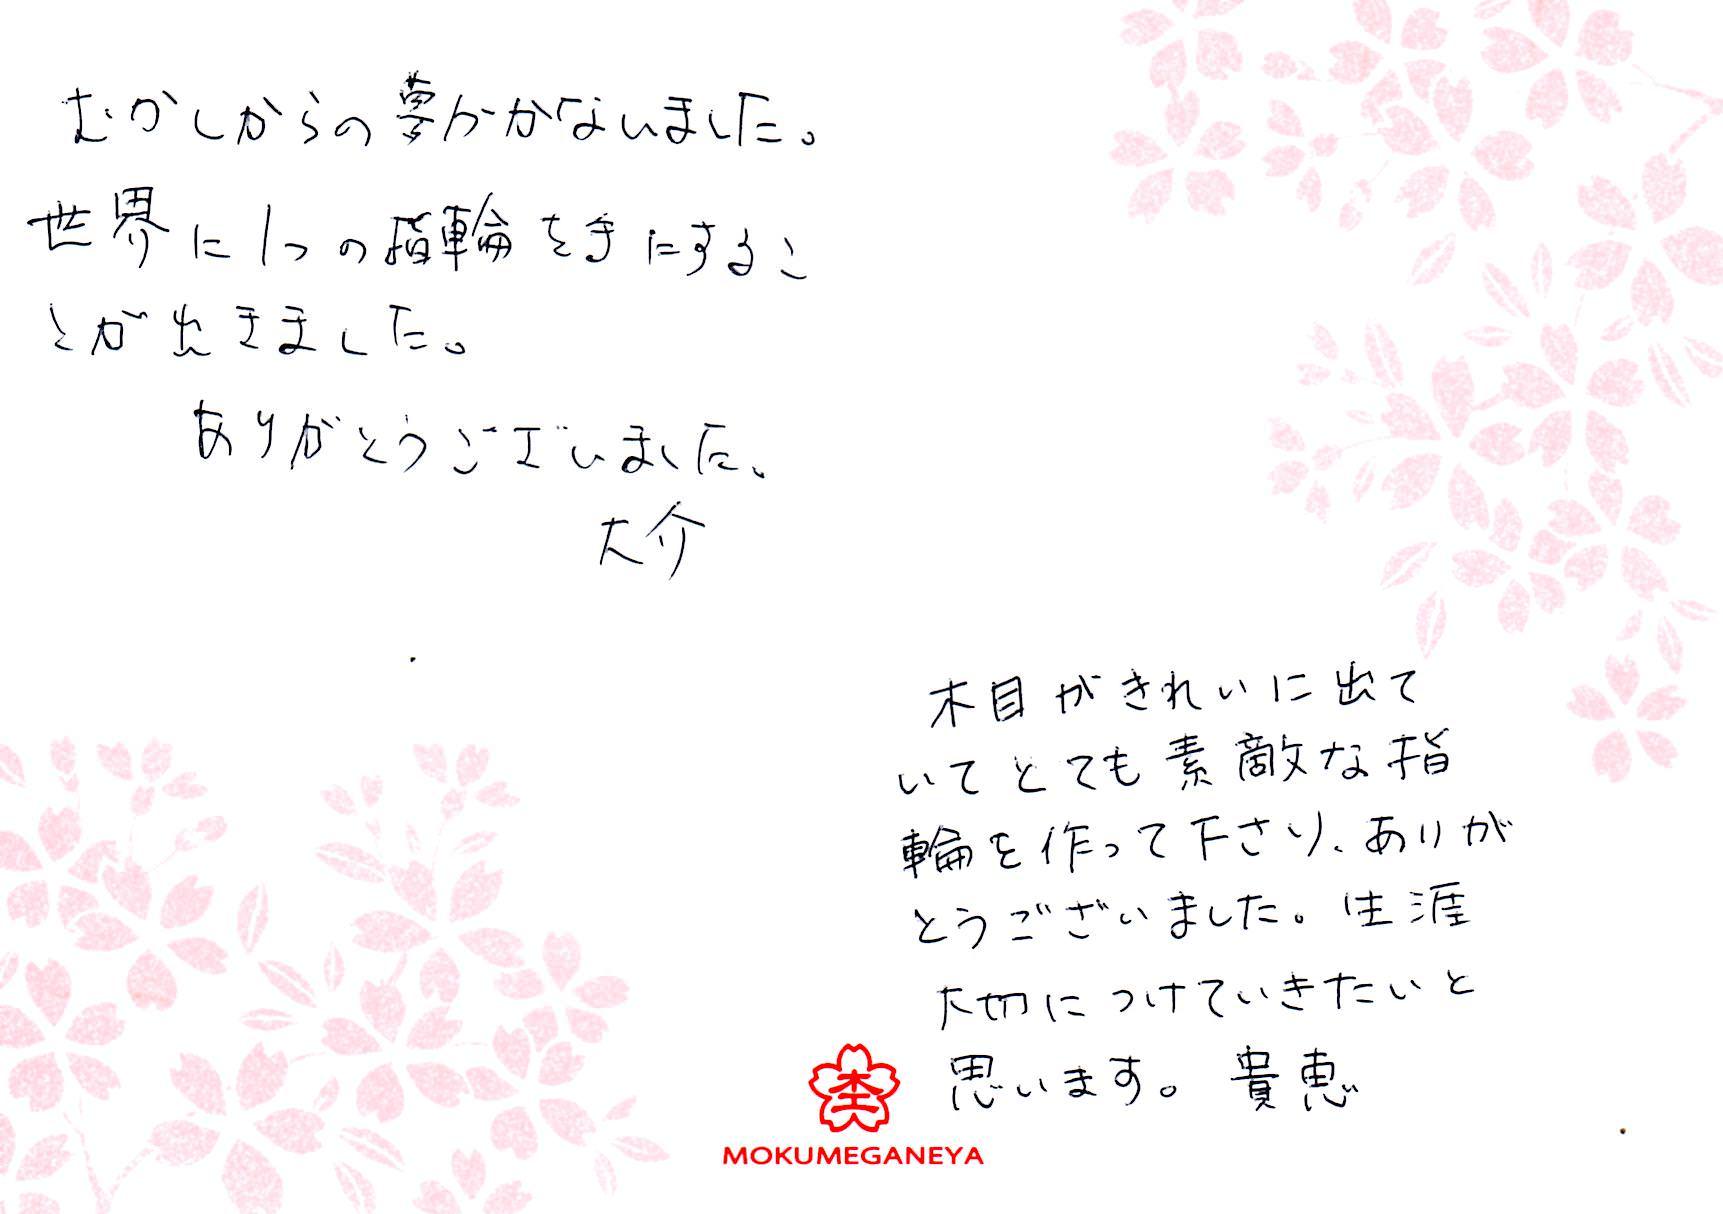 むかしからの夢がかないました。
世界に1つの指輪を手にするこ
とが出きました。
ありがとうございました、
大介
木目がきれいに出て
いてとても素敵な指
輪を作って下さり、ありが
とうございました。生涯
大切につけていきたいと
思います。貴恵
MOKUMEGANEYA